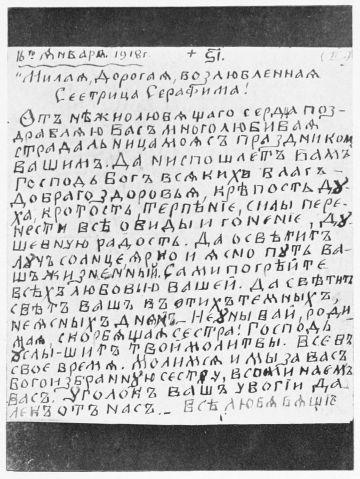 16го Января. 1918г. + Б͠І. (Е.)
"Милая, Дорогая, возлюбленная
Сестрица Серафима!
Отъ нѣжнолюбящаго сердца поз-
дравляю Васъ многолюбивая
страдальница моя съ праздником
Вашимъ. Да ниспошлетъ Вамъ
Господь Богъ всякихъ благъ -
добраго здоровья, крѣпость ду-
ха, кротость, терпѣніе, силы пере-
нести всѣ обиды и гоненіе, ду-
шевную радость. Да освѣтитъ
лучъ солнце ярко и ясно путь ва-
шъ жизненный. Сами погрѣйте
всѣхъ любовью вашей. Да свѣтитъ
свѣтъ вашъ въ этихъ темныхъ,
неясныхъ дняхъ. - Не унывай, роди-
мая, скорбящая сестра! Господь
услы-шитъ твои молитвы. Все въ
свое время. Молимся и мы за васъ
Богоизбранную сестру, вспоминаемъ
васъ. Уголокъ вашъ убогій да-
лекъ отъ насъ. - Всѣ любящіе